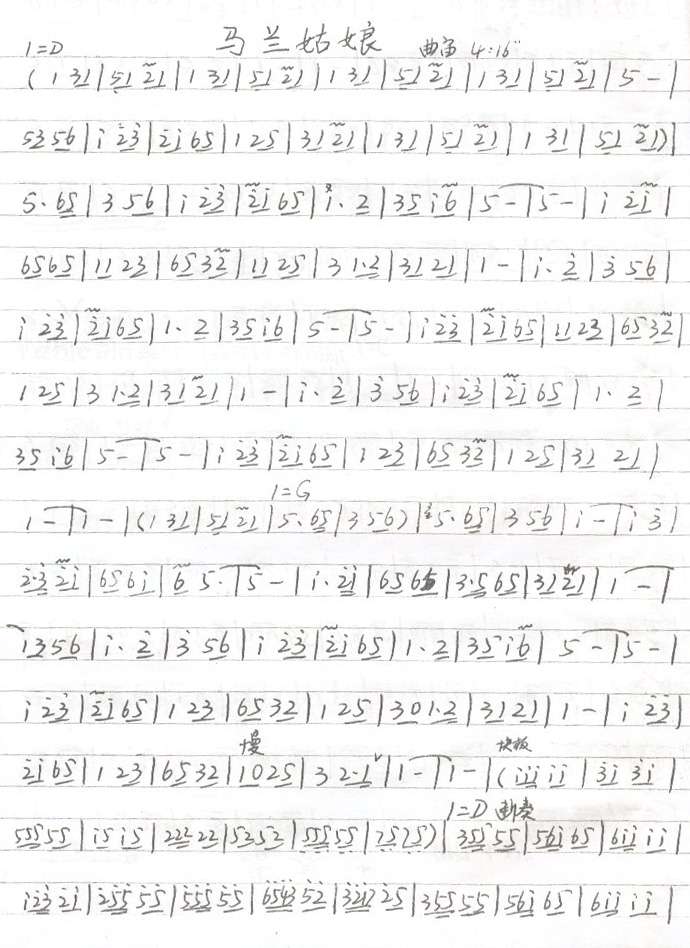 马兰姑娘
1=D 曲笛 4:16"
(1 31|51 21|1 31|51 21|1 31|51 21|1 31|51 21|5 -|
53 56|i 23|2i 65|1 25|31 21|1 31|51 21|1 31|51 21)|
5. 65|3 56|i 23|2i 65|i. 2|35 i6|5 -|5 -|i 2i|
65 65|11 23|65 32|11 25|3 1.2|31 21|1 -|i. 2|3 56|
i 23|2i 65|1. 2|35 i6|5 -|5 -|i 23|2i 65|11 23|65 32|
1 25|3 1.2|31 21|1 -|i. 2|3 56|i 23|2i 65|1. 2|
35 i6|5 -|5 -|i 23|2i 65|1 23|65 32|1 25|31 21|
1=G
1 -|1 -|(1 31|51 21|5. 65|3 56)|5. 65|3 56|i -|i 3|
2.3 2i|65 6i|6 5.|5 -|i. 2i|65 65|3.5 65|31 21|1 -|
13 56|i. 2|3 56|i 23|2i 65|1. 2|35 i6|5 -|5 -|
i 23|2i 65|1 23|65 32|1 25|30 1.2|31 21|1 -|i 23|
慢 快板
2i 65|1 23|65 32|10 25|3 2.1|1 -|1 -|(iii ii|3i 3i|
1=D
555 55|i5 i5|222 22|52 52|555 55|75 75)|355 55|56i 65|6ii ii|
i23 2i|255 55|555 55|6543 52|3212 25|355 55|56i 65|6ii ii|